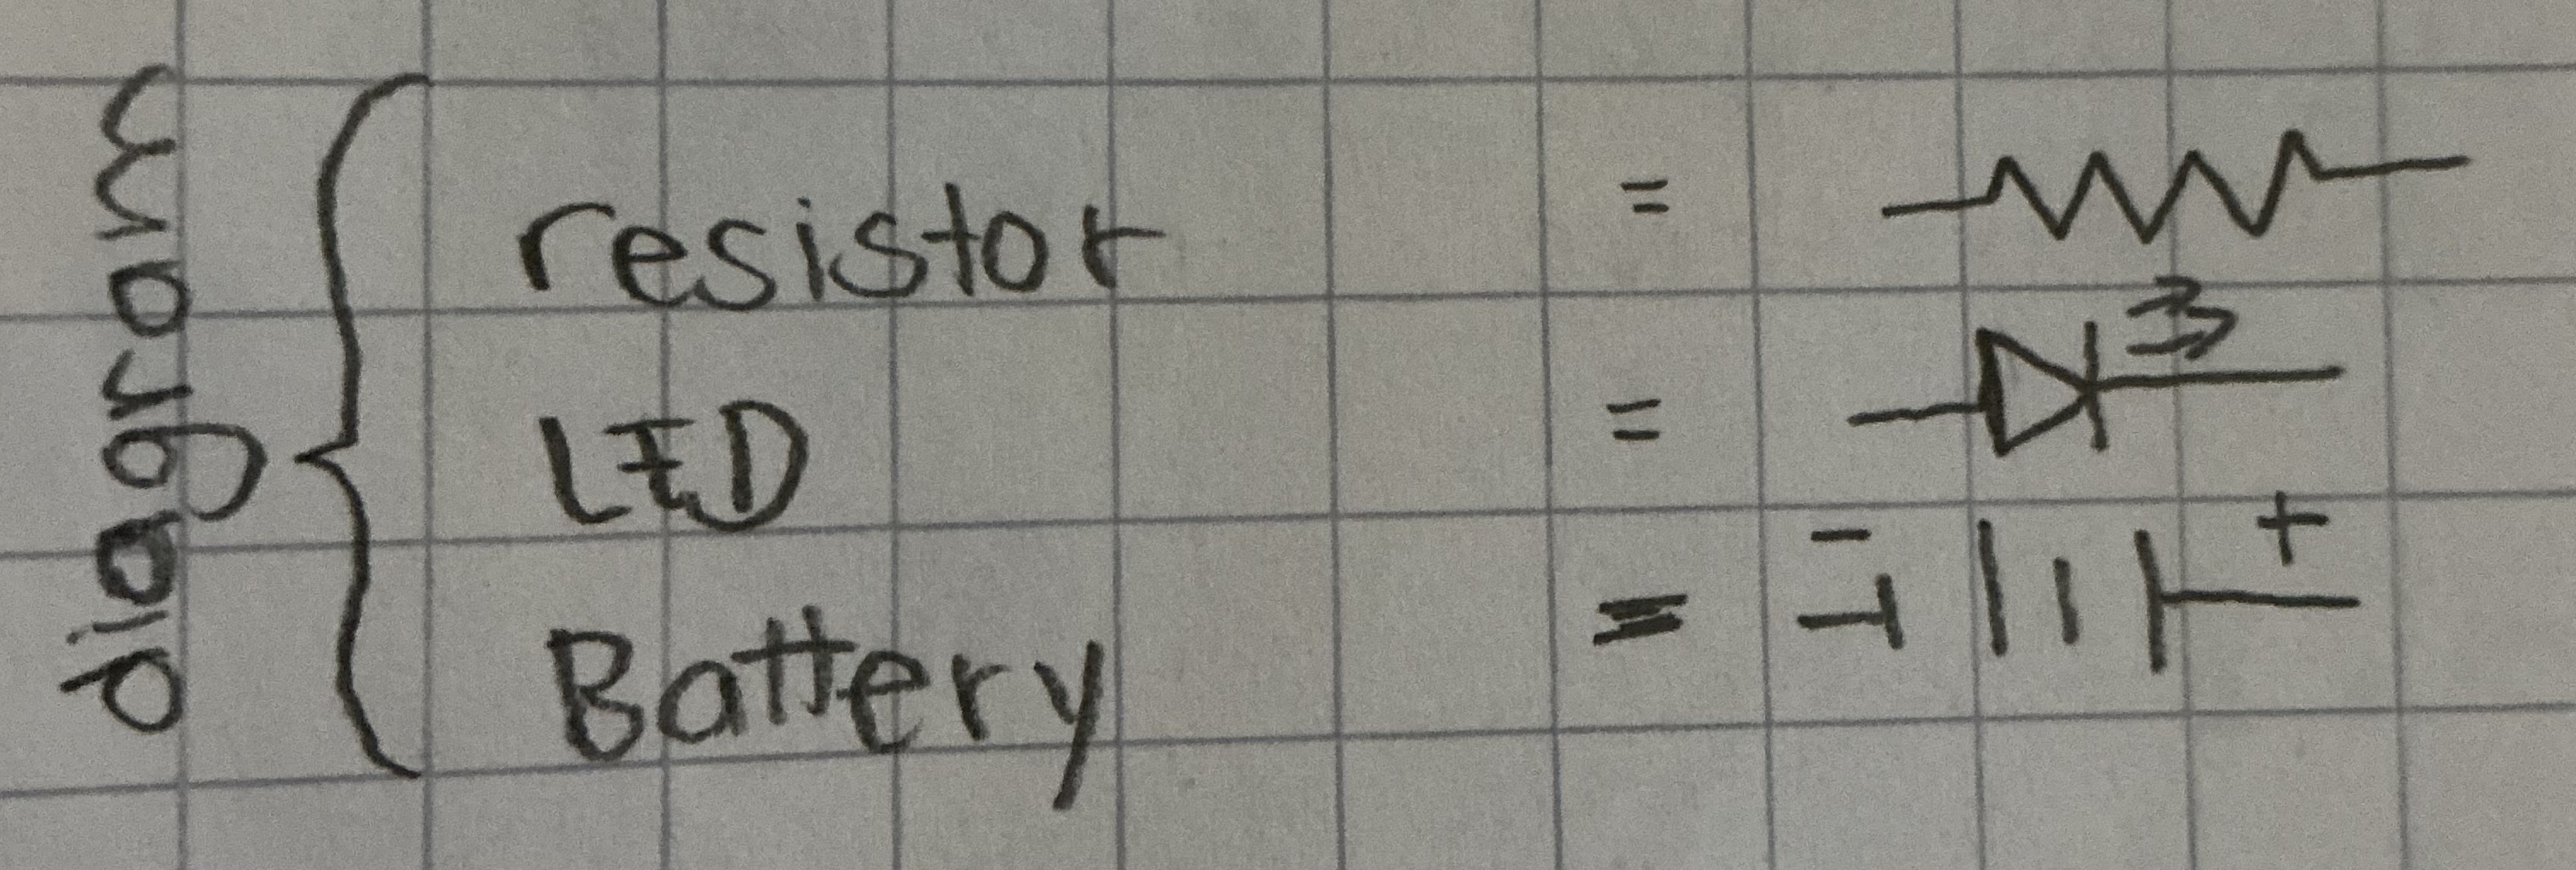 diagram
resistor =
LED =
Battery = - +